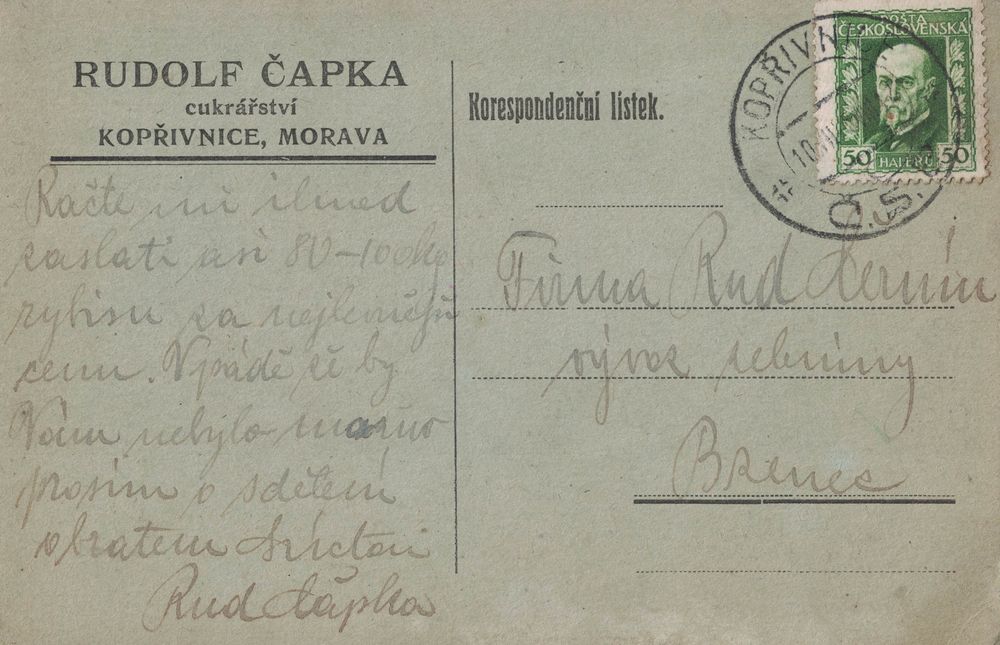 RUDOLF ČAPKA
cukrářství
KOPŘIVNICE, MORAVA
Račte mi ihned
zaslati asi 80-100 kg
rybisu za nejlevnější
cenu. V pádě že by
Vám nebylo možno
prosím o sdělení
obratem
Rud Čapka
Korespondenční lístek.
POŠTA
ČESKOSLOVENSKÁ
50 HALÉŘŮ 50
KOPŘIVNICE
10
Č.S.
Firma Rud
vývoz zeleniny
Bzenec